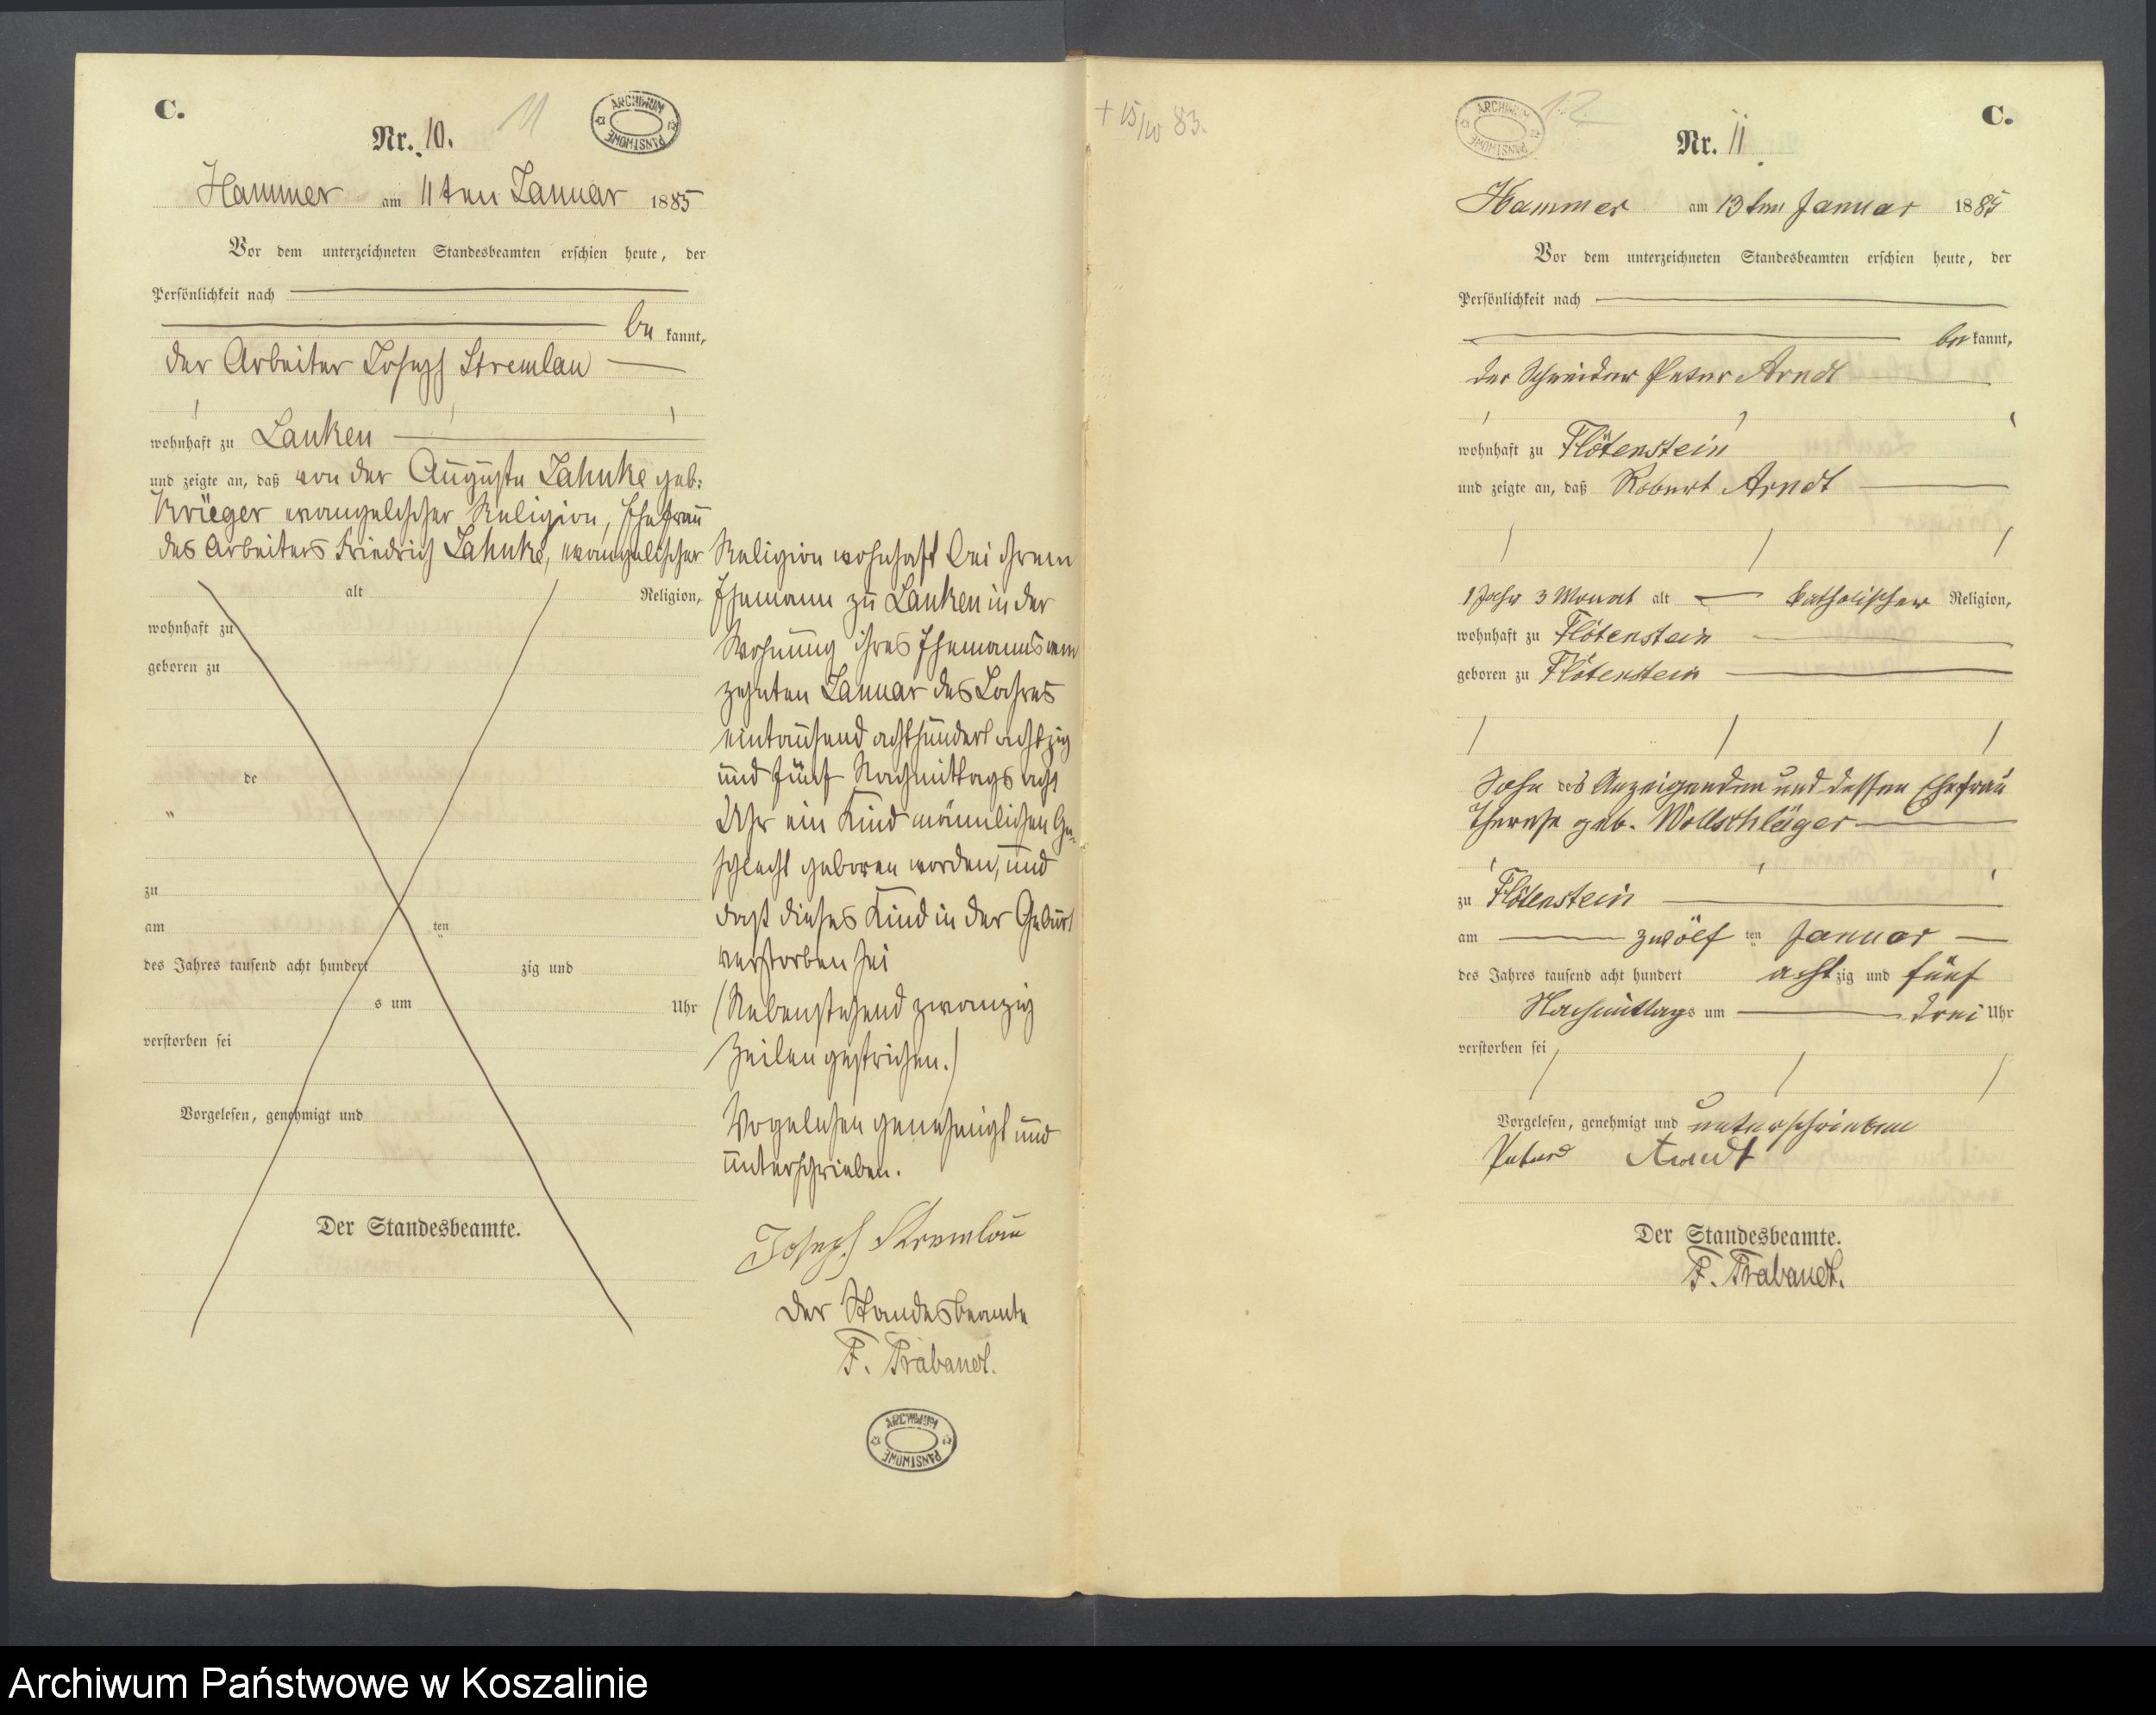 C.
Nr. 10.
11
ARCHIWUM PAŃSTWOWE
Hammer am 11ten Januar 1885
Vor dem unterzeichneten Standesbeamten erschien heute, der
Persönlichkeit nach
be kannt,
der Arbeiter Joseph Stremlau
wohnhaft zu Lanken
und zeigte an, daß von der Auguste Jahnke geb:
Krüeger evangelischer Religion, Ehefrau
des Arbeiters Friedrich Jahnke, evangelischer
alt Religion,
wohnhaft zu
geboren zu
de
"
zu
am ten
des Jahres tausend acht hundert zig und
s um Uhr
verstorben sei
Vorgelesen, genehmigt und
Der Standesbeamte.
Religion wohnhaft bei ihrem
Ehemann zu Lanken in der
Wohnung ihres Ehemanns am
zehnten Januar des Jahres
eintausend achthundert achtzig
und fünf Nachmittags acht
Uhr ein Kind männlichen Ge-
schlecht geboren worden, und
daß dieses Kind in der Geburt
verstorben sei
(Nebenstehend zwanzig
Zeilen gestrichen.)
Vogelesen genehmigt und
unterschrieben.
Joseph Stremlau
Der Standesbeamte
F. Trabandt.
ARCHIWUM PAŃSTWOWE
+ 15/10 83.
ARCHIWUM PAŃSTWOWE
12
C.
Nr. 11
Hammer am 13ten Januar 1885
Vor dem unterzeichneten Standesbeamten erschien heute, der
Persönlichkeit nach
be kannt,
der Schneider Peter Arndt
wohnhaft zu Flötenstein
und zeigte an, daß Robert Arndt
1 Jahr 3 Monat alt katholischer Religion,
wohnhaft zu Flötenstein
geboren zu Flötenstein
Sohn des Anzeigenden und dessen Ehefrau
Therese geb. Wollschläger
zu Flötenstein
am zwölf ten Januar
des Jahres tausend acht hundert acht zig und fünf
Nachmittags um drei Uhr
verstorben sei
Vorgelesen, genehmigt und unterschrieben
Peter Arndt
Der Standesbeamte.
F. Trabandt.
Archiwum Państwowe w Koszalinie